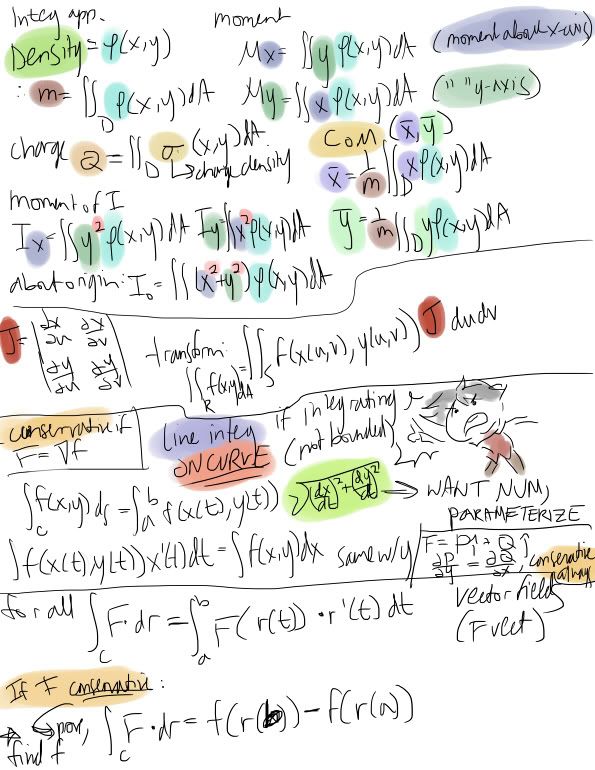 Integ app.
Density = ρ(x,y)
∴ m = ∬_D ρ(x,y)dA
charge Q = ∬_D σ(x,y)dA
↳ charge density
moment
Mx = ∬ y ρ(x,y)dA (moment about x-axis)
My = ∬ x ρ(x,y)dA (" " y-axis)
COM (x̄, ȳ)
x̄ = 1/m ∬_D xρ(x,y)dA
ȳ = 1/m ∬_D yρ(x,y)dA
moment of I
Ix = ∬ y² ρ(x,y)dA Iy = ∬ x² ρ(x,y)dA
about origin: I₀ = ∬ (x²+y²) ρ(x,y)dA
J = | ∂x/∂u ∂x/∂v |
| ∂y/∂u ∂y/∂v |
transform: ∬_R f(x,y)dA = ∬_S f(x(u,v), y(u,v)) J dudv
conservative if
F = ∇f
line integ
ON CURVE
if integrating
(not bounded)
∫_C f(x,y)ds = ∫_a^b f(x(t), y(t)) √((dx/dt)²+(dy/dt)²) → WANT NUM,
PARAMETERIZE
∫ f(x(t),y(t))x'(t)dt = ∫ f(x,y)dx same w/ y
F = Pi + Qj
∂P/∂y = ∂Q/∂x, conservative
vector field
(F vect)
for all ∫_C F·dr = ∫_a^b F(r(t))·r'(t)dt
If F conservative:
∫_C F·dr = f(r(b)) - f(r(a))
find f